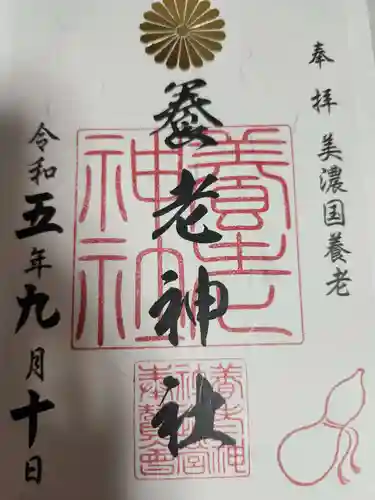 奉拝
美濃国養老
養老神社
令和五年九月十日
養老神社